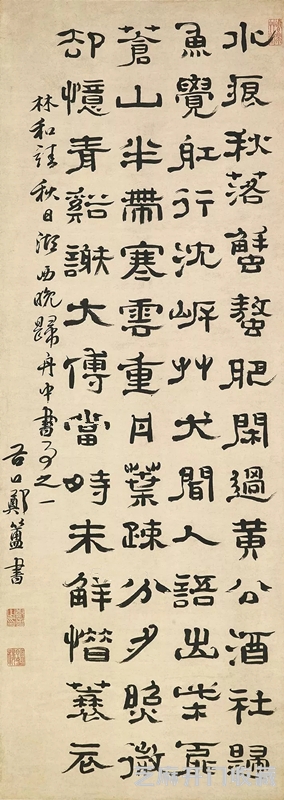 水痕秋落蟹螯肥閑過黃公酒社歸
魚覺舡行沈岍艸犬聞人語出柴扉
蒼山半帶寒雲重丹葉疎分夕照微
却憶青谿謝大傅當時未解惜蓑衣
林和靖秋日湖西晚歸舟中書事之一
谷口鄭簠書